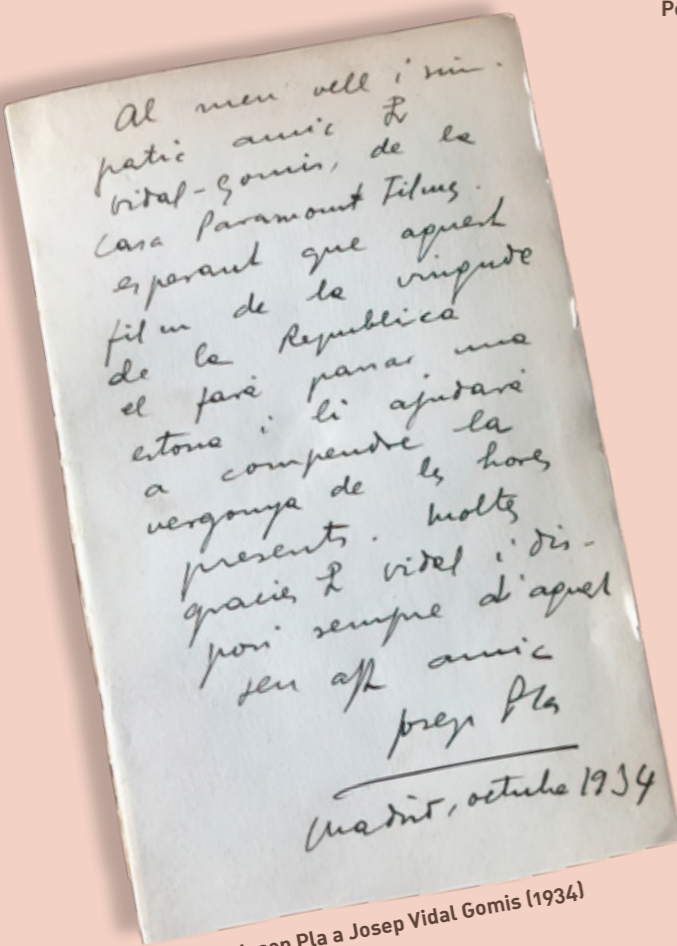 Pe
Al meu vell i sim-
patic amic
Vidal-Gomis, de la
Casa Paramount Films.
esperant que aquest
film de la vinguda
de la Republica
el farà passar una
estona i li ajudarà
a compendre la
vergonya de les hores
presents. Moltes
gracies Vidal i dis-
posi sempre d'aquest
seu amic
Josep Pla
Madrid, octubre 1934
Josep Pla a Josep Vidal Gomis (1934)